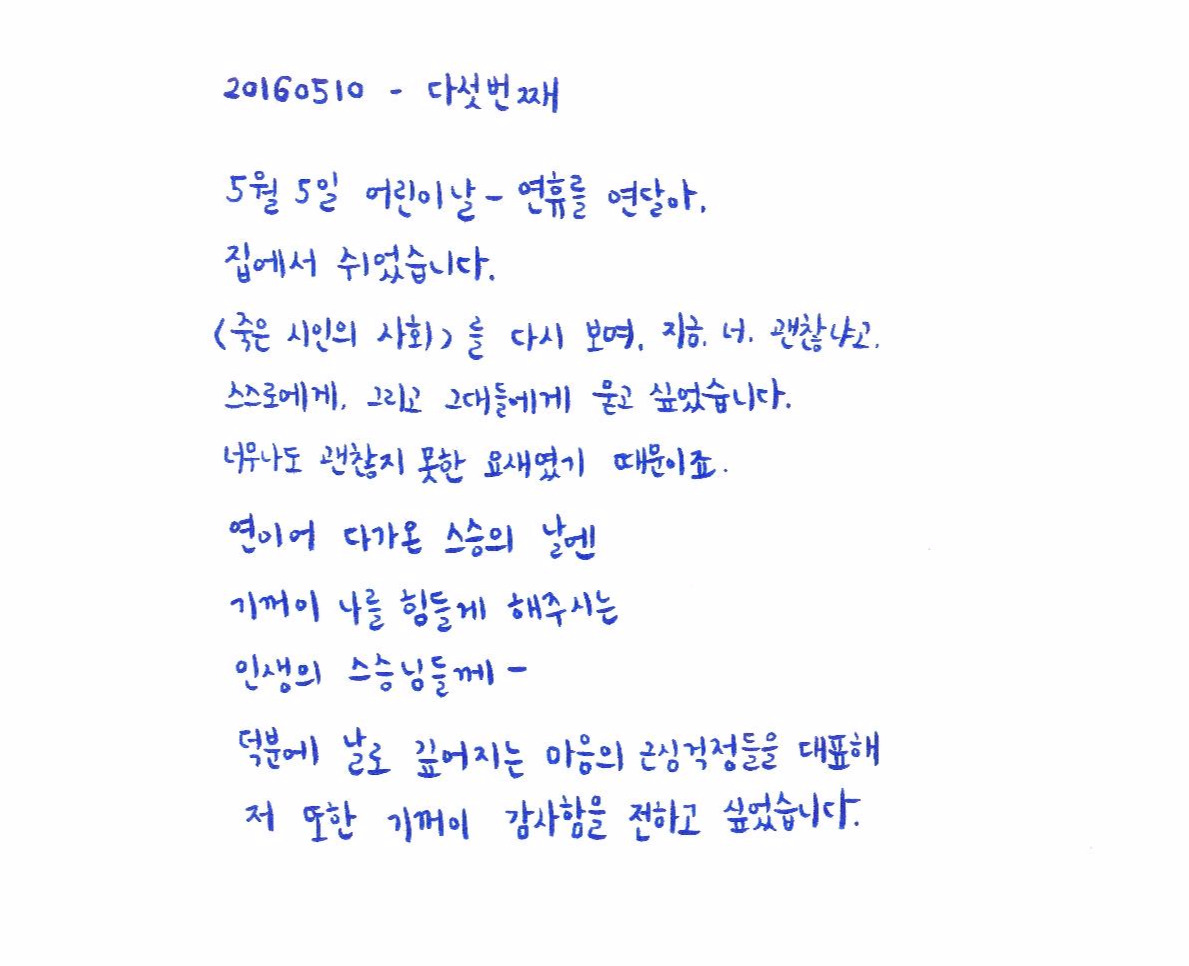 20160510 - 다섯번째
5월 5일 어린이날 - 연휴를 연달아,
집에서 쉬었습니다.
<죽은 시인의 사회>를 다시 보며, 지금, 너, 괜찮냐고,
스스로에게, 그리고 그대들에게 묻고 싶었습니다.
너무나도 괜찮지 못한 요새였기 때문이죠.
연이어 다가온 스승의 날엔
기꺼이 나를 힘들게 해주시는
인생의 스승님들께 -
덕분에 날로 깊어지는 마음의 근심걱정들을 대표해
저 또한 기꺼이 감사함을 전하고 싶었습니다.